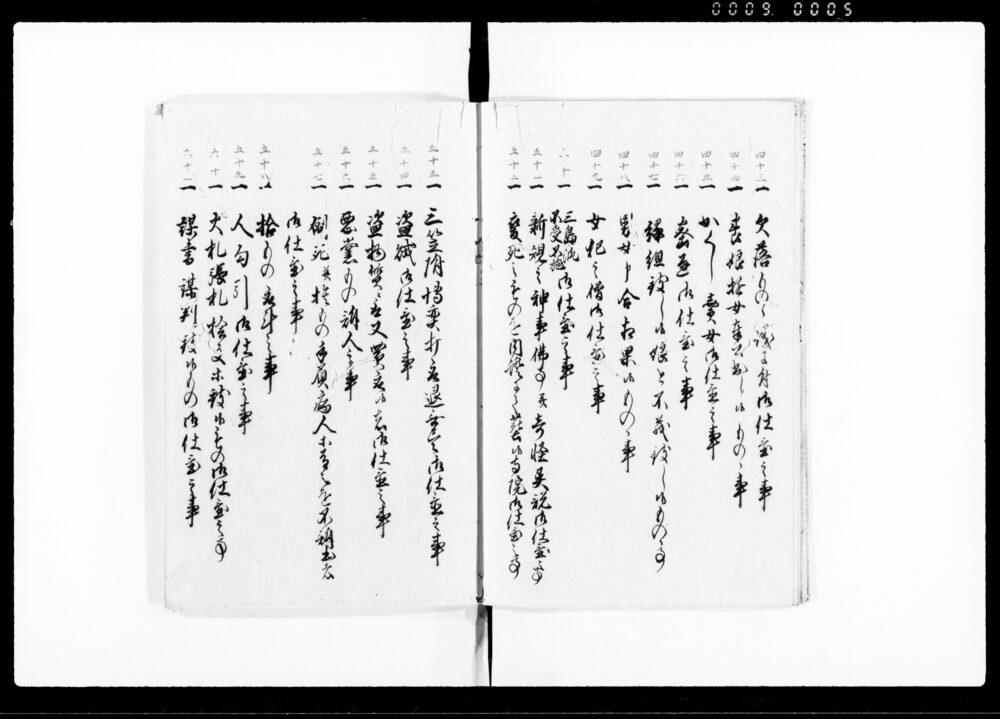 0009 0005
四十三 一 欠落もの之儀ニ付御仕置之事
四十四 一 養娘遊女奉公出し候もの之事
四十五 一 かくし賣女御仕置之事
四十六 一 密通御仕置之事
四十七 一 縁組致し候娘と不義致し候もの之事
四十八 一 男女申合相果候もの之事
四十九 一 女犯之僧御仕置之事
五十 一 三鳥派不受不施御仕置之事
五十一 一 新規之神事佛事并奇怪異説御仕置之事
五十二 一 変死之ものを内證ニて葬候寺院御仕置之事
五十三 一 三笠附博奕打取退無尽御仕置之事
五十四 一 盗賊御仕置之事
五十五 一 盗物質ニ取又買取候者御仕置之事
五十六 一 悪黨もの訴人之事
五十七 一 倒死并捨もの手負病人等有之を不訴出者
御仕置之事
五十八 一 拾もの取計之事
五十九 一 人勾引御仕置之事
六十 一 火札張札捨文等致候もの御仕置之事
六十一 一 謀書謀判致候もの御仕置之事